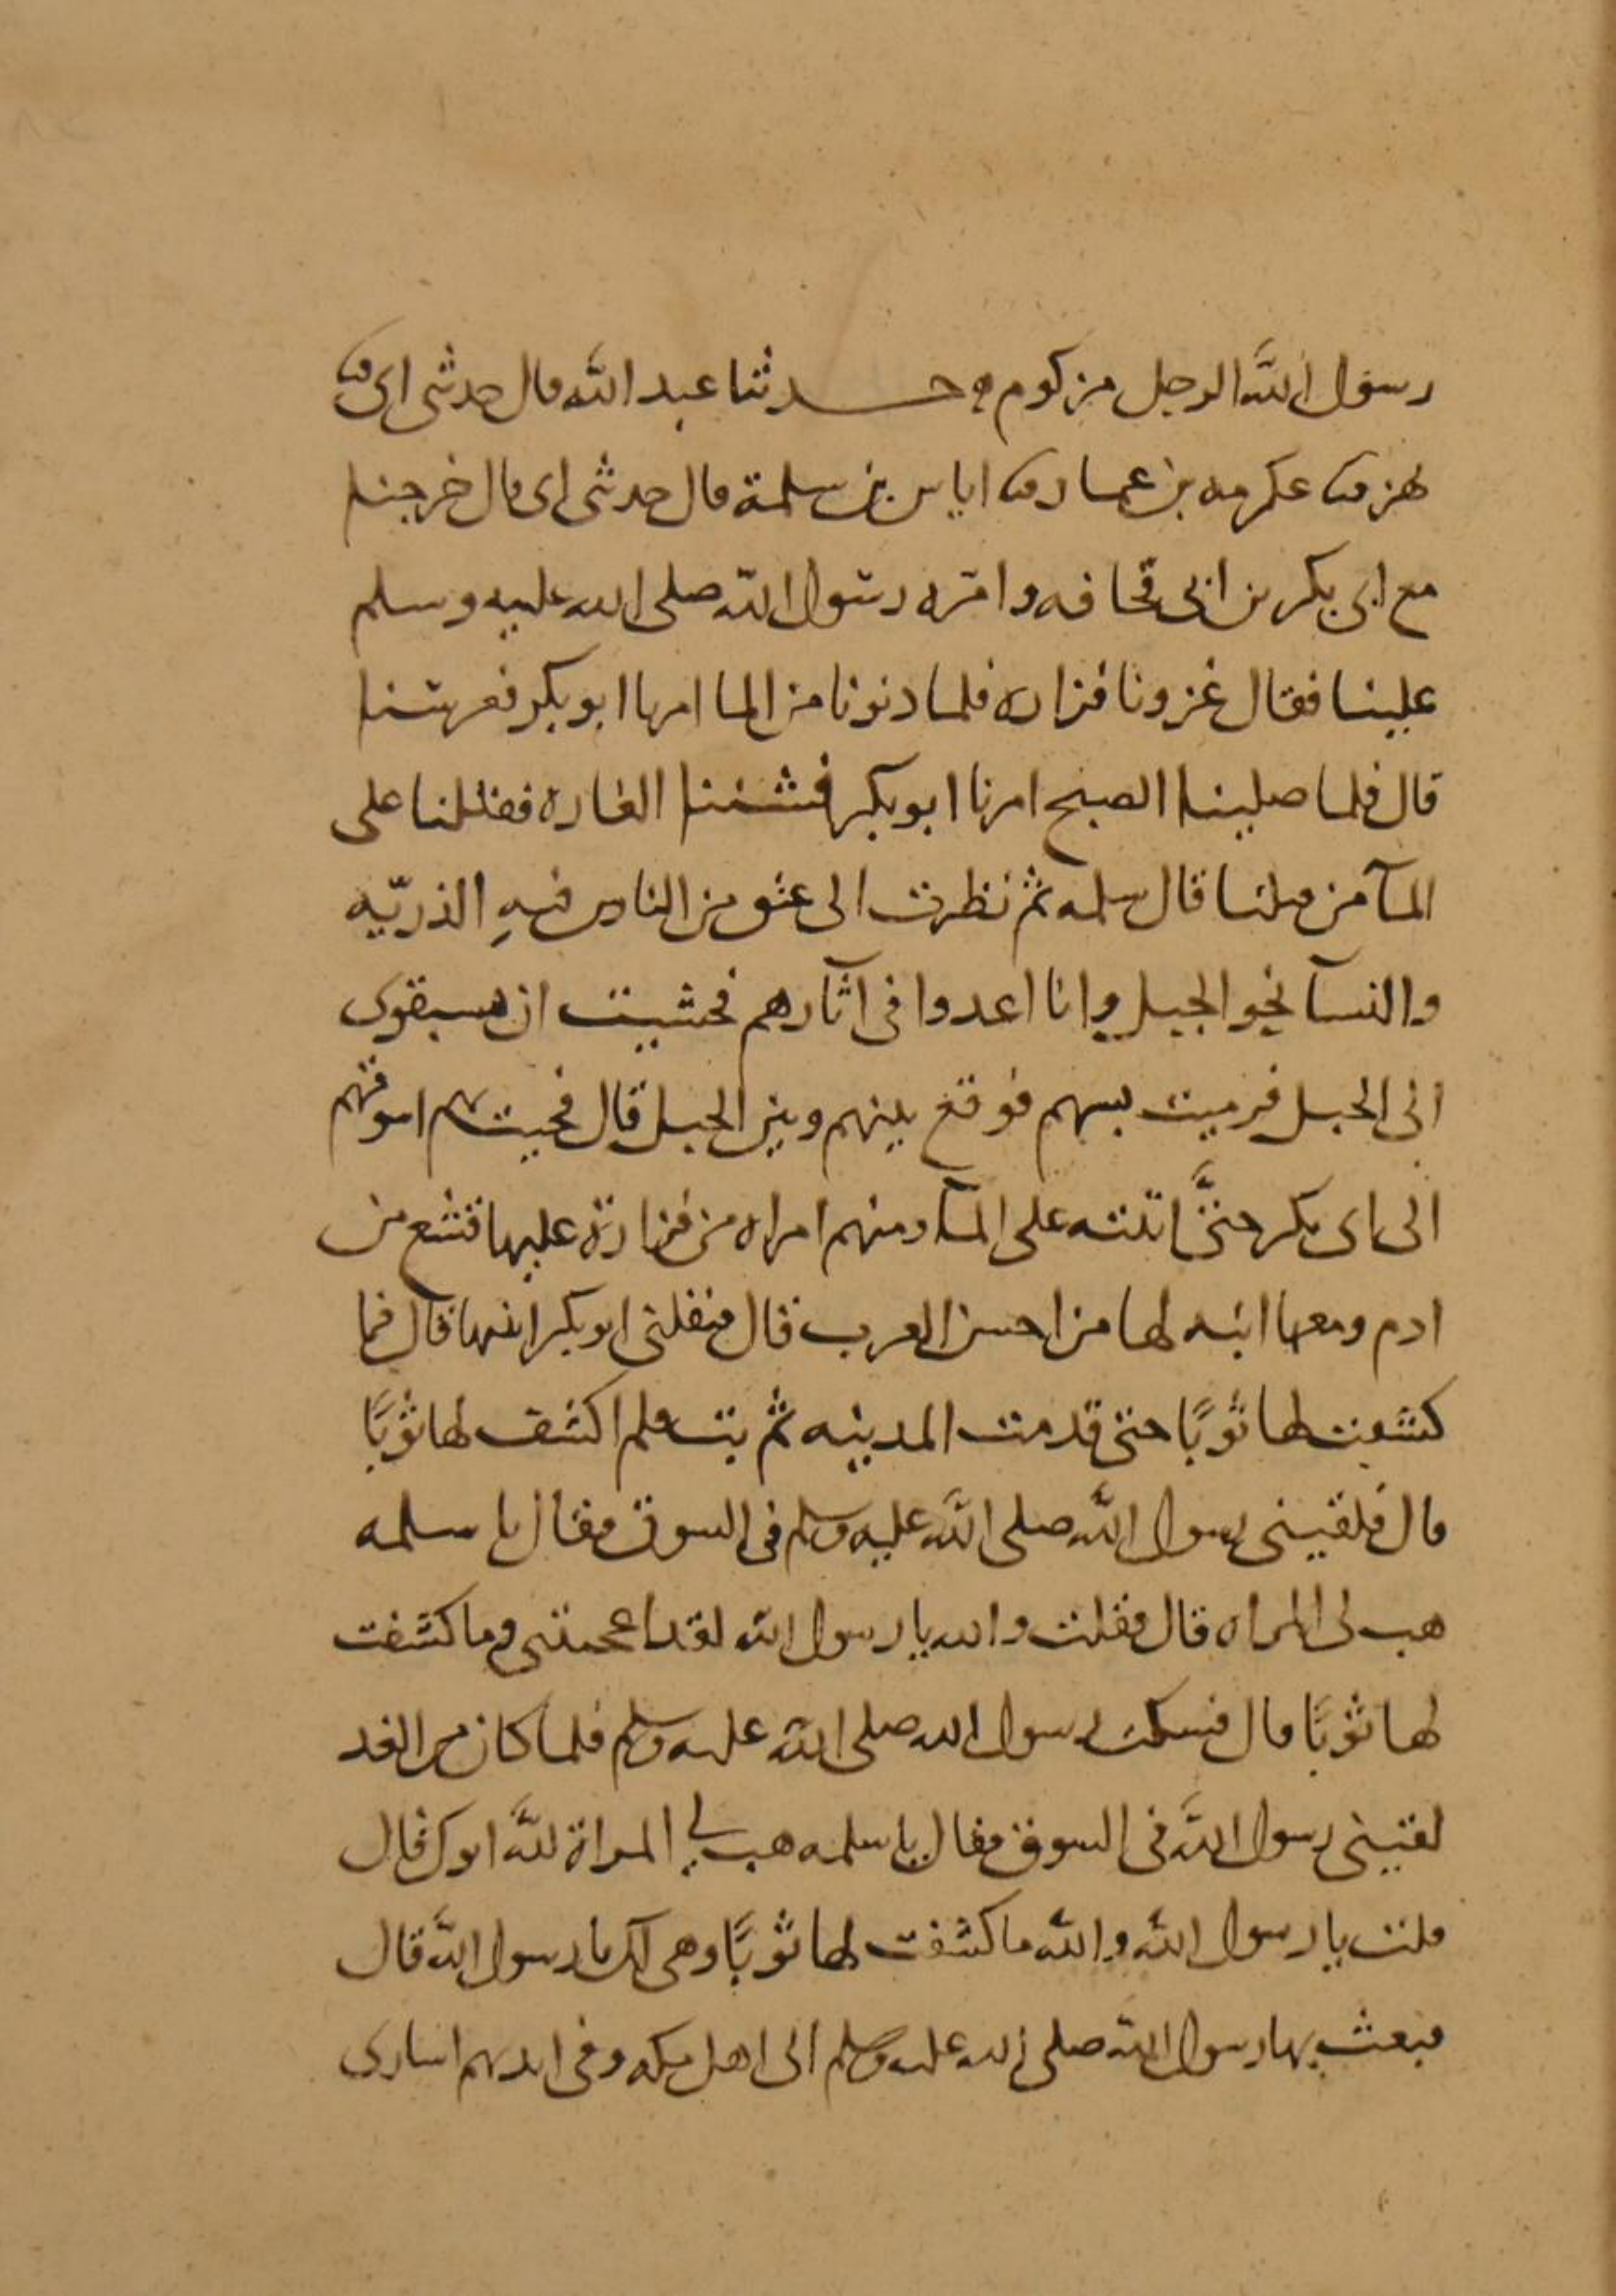 رسول الله الرجل مزكوم ۞ حـــدثنا عبد الله قال حدثني ابي ثنا
بهز ثنا عكرمه بن عمار ثنا اياس بن سلمة قال حدثني ابي قال خرجنا
مع ابي بكر بن ابي قحافه وامره رسول الله صلى الله عليه وسلم
علينا فقال غزونا فزاره فلما دنونا من الما امرنا ابو بكر فعرسنا
قال فلما صلينا الصبح امرنا ابو بكر فشننا الغاره فقتلنا على
المآ من قتلنا قال سلمه ثم نظرت الى عنق من الناس فيهِ الذريّه
والنسآ نحو الجبل وانا اعدوا في آثارهم فخشيت ان يسبقوني
الى الجبل فرميت بسهم فوقع بينهم وبين الجبل قال فجيت بهم اسوقهم
الى ابي بكر حتَّى اتيته على المآ ومنهم امراه من فزارة عليها قشع من
ادم ومعها ابنه لها من احسن العرب قال فنفلني ابو بكر ابنتها قال فما
كشفت لها ثوبًا حتى قدمت المدينه ثم بت فلم اكشف لها ثوبًا
قال فلقيني رسول الله صلى الله عليه وسلم في السوق فقال يا سلمه
هب لي المراه قال فقلت والله يا رسول الله لقد اعجبتني وما كشفت
لها ثوبًا قال فسكت رسول الله صلى الله عليه وسلم فلما كان من الغد
لقيني رسول الله في السوق فقال يا سلمه هب لي المراة لله ابوك قال
قلت يا رسول الله والله ما كشفت لها ثوبًا وهي لك يا رسول الله قال
فبعث بها رسول الله صلى الله عليه وسلم الى اهل مكه وفي ايديهم اسارى